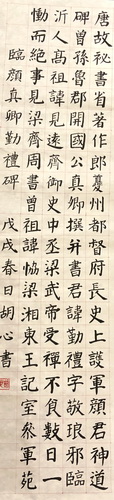 唐故祕書省著作郎夔州都督府長史上護軍顏君神道
碑曾孫魯郡開國公真卿撰并書君諱勤禮字敬琅邪臨
沂人高祖諱見遠齊御史中丞梁武帝受禪不食數日一
慟而絕事見梁齊周書曾祖諱恊梁湘東王記室叅軍苑
臨顏真卿勤禮碑 戊戌春日胡心書